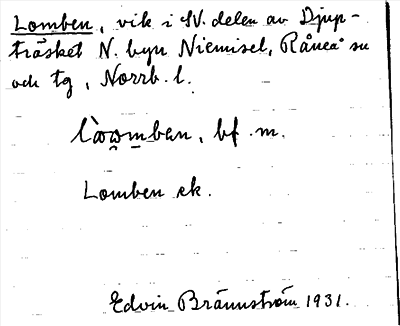 Lomben, vik i SV. delen av Djup-
träsket N. byn Niemisel, Råneå sn
och tg, Norrb. l.
Lomben ek.
Edvin Brännström 1931.